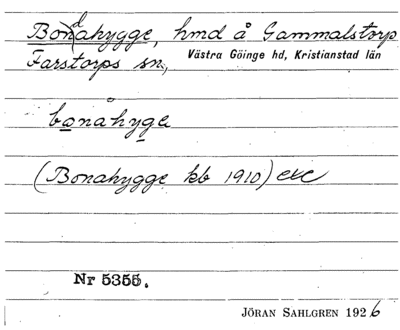 Bondahygge, hmd å Gammalstorp
Farstorps sn, Västra Göinge hd, Kristianstad län
bonahyge
(Bonahygge kb 1910) exc
Nr 5355.
JÖRAN SAHLGREN 1926